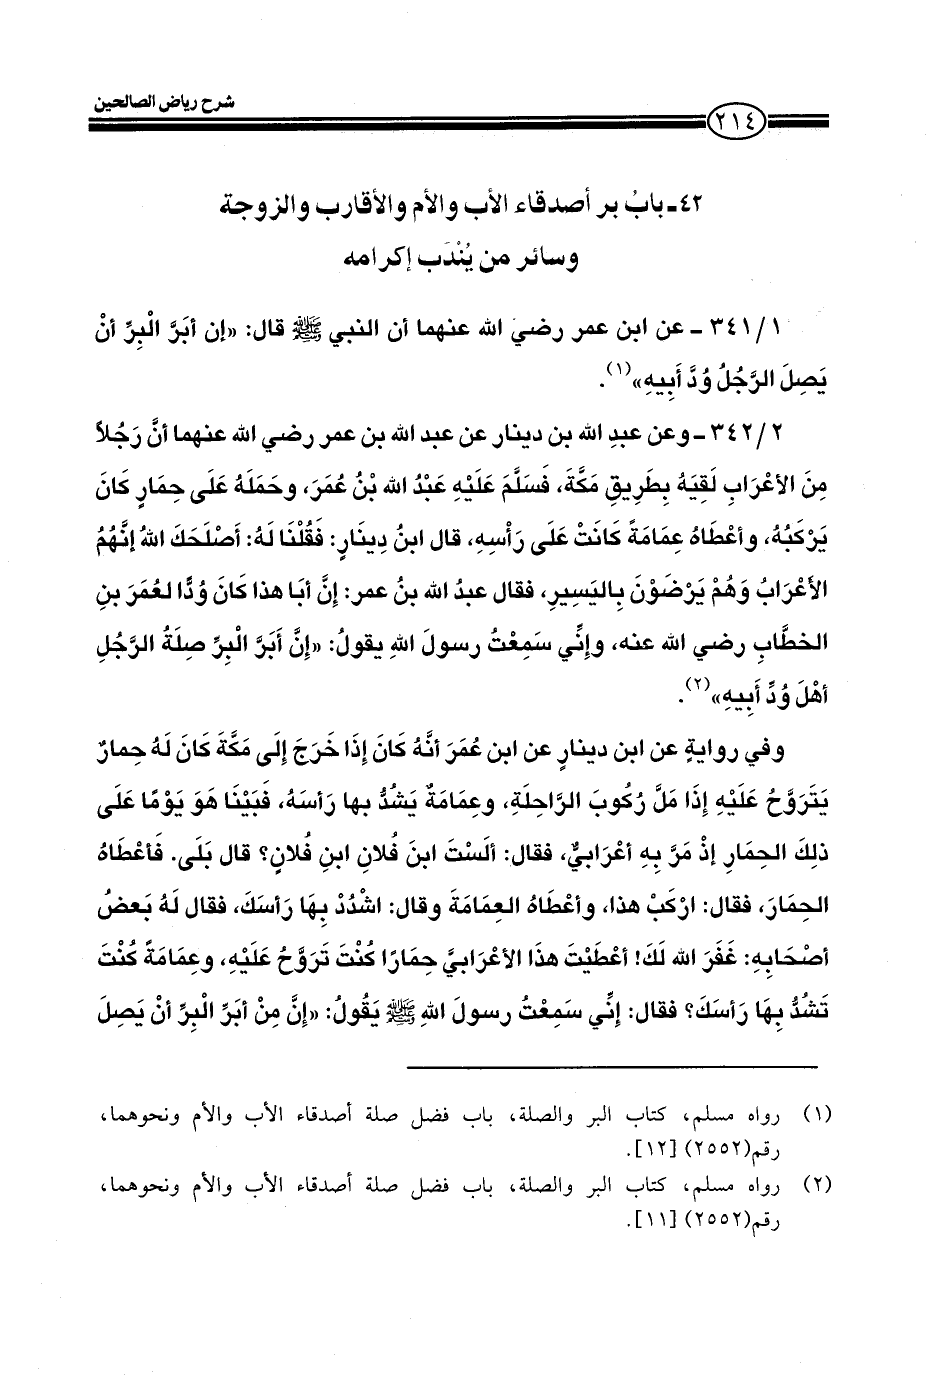 شرح رياض الصالحين
٢١٤
٤٢ـ بابُ بر أصدقاء الأب والأم والأقارب والزوجة
وسائر من يُنْدَب إكرامه
٣٤١/١ ـ عن ابن عمر رضيَ الله عنهما أن النبي ﷺ قال: «إن أبَرَّ الْبِرِّ أنْ
يَصِلَ الرَّجُلُ وُدَّ أَبِيهِ»(١).
٣٤٢/٢ ـ وعن عبدِ الله بن دينار عن عبد الله بن عمر رضي الله عنهما أنَّ رَجُلاً
مِنَ الأعْرَابِ لَقِيَهُ بِطَرِيقِ مَكَّةَ، فَسَلَّمَ عَلَيْهِ عَبْدُ الله بْنُ عُمَرَ، وحَمَلَهُ عَلَى حِمَارٍ كَانَ
يَرْكَبُهُ، وأعْطَاهُ عِمَامَةً كَانَتْ عَلَى رَأْسِهِ، قال ابنُ دِينَارٍ: فَقُلْنَا لَهُ: أصْلَحَكَ اللهُ إنَّهُمُ
الأعْرَابُ وَهُمْ يَرْضَوْنَ بِاليَسِيرِ، فقال عبدُ الله بنُ عمر: إنَّ أبَا هذا كَانَ وُدًّا لعُمَرَ بنِ
الخطَّابِ رضي الله عنه، وإنِّي سَمِعْتُ رسولَ اللهِ يقولُ: «إنَّ أَبَرَّ الْبِرِّ صِلَةُ الرَّجُلِ
أهْلَ وُدِّ أَبِيهِ»(٢).
وفي روايةٍ عن ابن دينارٍ عن ابن عُمَرَ أنَّهُ كَانَ إذَا خَرَجَ إلَى مَكَّةَ كَانَ لَهُ حِمارٌ
يَتَرَوَّحُ عَلَيْهِ إذَا مَلَّ رُكُوبَ الرَّاحِلَةِ، وعِمَامَةٌ يَشُدُّ بها رَأسَهُ، فَبَيْنَا هَوَ يَوْمًا عَلَى
ذلِكَ الحِمَارِ إذْ مَرَّ بِهِ أعْرَابيٌّ، فقال: ألَسْتَ ابنَ فُلانِ ابنِ فُلانٍ؟ قال بَلَى. فَأعْطَاهُ
الحِمَارَ، فقال: ارْكَبْ هذا، وأعْطَاهُ العِمَامَةَ وقال: اشْدُدْ بِهَا رَأسَكَ، فقال لَهُ بَعضُ
أصْحَابِهِ: غَفَرَ الله لَكَ! أعْطَيْتَ هذَا الأعْرَابيَّ حِمَارًا كُنْتَ تَرَوَّحُ عَلَيْهِ، وعِمَامَةً كُنْتَ
تَشُدُّ بِهَا رَأسَكَ؟ فقال: إنِّي سَمِعْتُ رسولَ اللهِ ﷺ يَقُولُ: «إنَّ مِنْ أبَرِّ الْبِرِّ أنْ يَصِلَ
(١) رواه مسلم، كتاب البر والصلة، باب فضل صلة أصدقاء الأب والأم ونحوهما،
رقم(٢٥٥٢) [١٢].
(٢) رواه مسلم، كتاب البر والصلة، باب فضل صلة أصدقاء الأب والأم ونحوهما،
رقم(٢٥٥٢) [١١].